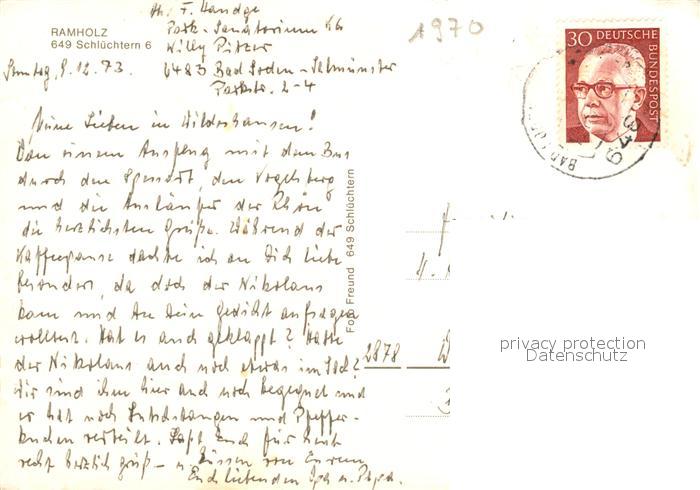 RAMHOLZ
649 Schlüchtern 6
F. Handge
Park-Sanatorium
Willy Pitzer
6483 Bad Soden-Salmünster
Parkstr. 2-4
Sonntag, 9.12.73.
1970
30 DEUTSCHE
BUNDESPOST
6483
BAD
Meine Lieben in Wildeshausen!
Von einem Ausflug mit dem Bus
durch den Spessart, den Vogelsberg
und die Ausläufer der Rhön
die herzlichsten Grüße. Während der
Kaffeepause dachte ich an Dich liebe
besonders, da doch der Nikolaus
kam und Du Dein Gedicht aufsagen
wolltest. Hat es auch geklappt? Hatte
der Nikolaus auch noch etwas im Sack?
Wir sind ihm hier auch noch begegnet und
er hat noch und Pfeffer-
kuchen verteilt. Laßt Euch für heute
recht herzlich grüß- u. küssen von Euren
Euch liebenden Opa u. Papa.
Foto Freund 649 Schlüchtern
2878
privacy protection
Datenschutz